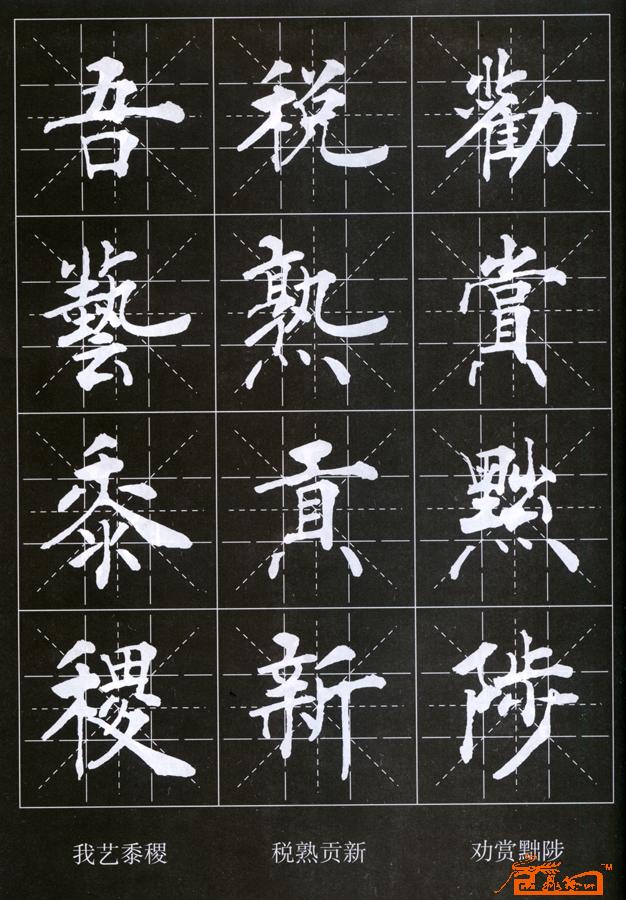 吾藝黍稷
税熟貢新
勸賞黜陟
我艺黍稷 税熟贡新 劝赏黜陟
TM